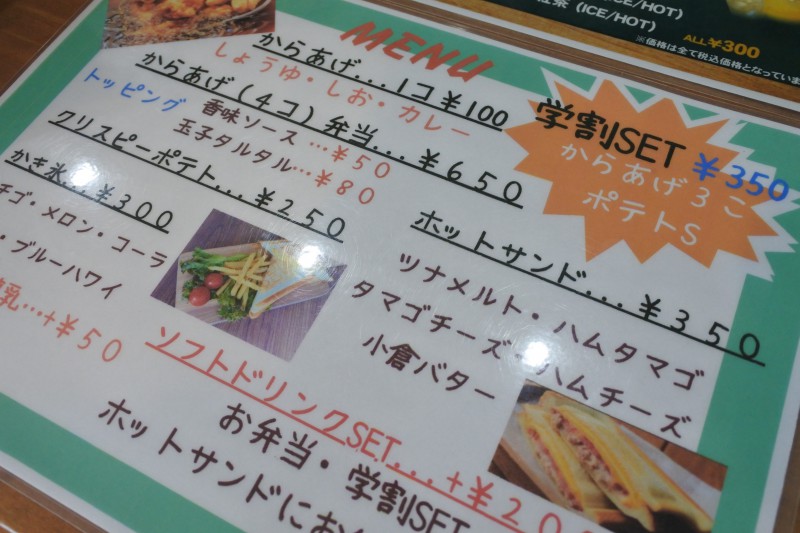 (ICE/HOT)
茶 (ICE/HOT)
ALL¥300
※価格は全て税込価格となっていま
MENU
からあげ...1コ¥100
しょうゆ・しお・カレー
からあげ(4コ)弁当...¥650
トッピング
香味ソース…¥50
玉子タルタル…¥80
クリスピーポテト...¥250
かき氷...¥300
チゴ・メロン・コーラ
・ブルーハワイ
乳…+¥50
学割SET ¥350
からあげ3こ
ポテトS
ホットサンド...¥350
ツナメルト・ハムタマゴ
タマゴチーズ・ハムチーズ
小倉バター
ソフトドリンクSET...+¥200
お弁当・学割SET
ホットサンドにお